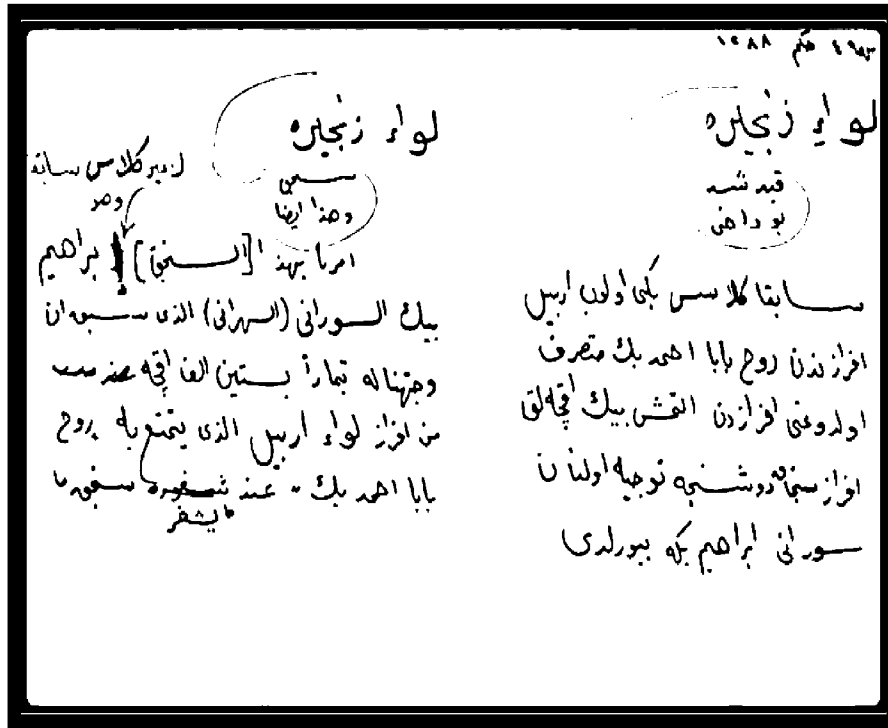 ٤٩٨٣ حكم ١٢٨٨
لواء زنجيره
قيد شد
بو داخى
سابقا كلاس بكى اولوب اربيل
افرازندن روح بابا احمد بك متصرف
اولدوغى افرازدن التمش بيك اقچه لق
افراز دوشنجه توجيه اولنان
سورانى ابراهيم بكه بيورلدى
لواء زنجيره
سجل
وهذا ايضا
امير كلاس سابقا
وهو
امرنا بهذا [السنجق] ابراهيم
بيك السورانى (السهرانى) الذى سبق ان
وجهنا له تيمارا بستين الف اقچه
من افراز لواء اربيل الذى يتمتع به روح
بابا احمد بك عند شغوره سنجق ما
يشغر